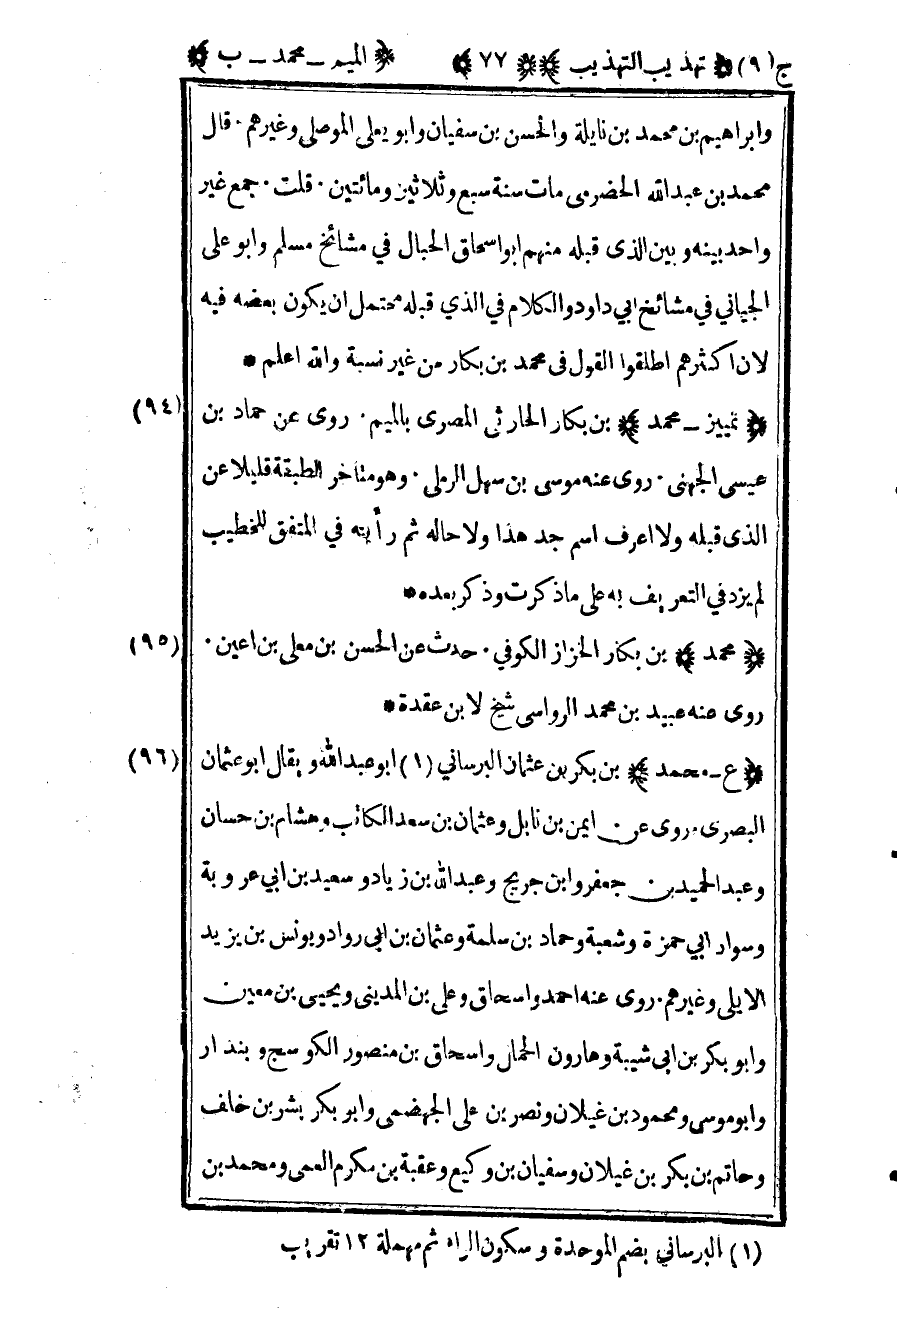 ج(٩) ﴿ تهذيب التهذيب ﴾ ﴿ ٧٧ ﴾ ﴿ الميم ـ محمد ـ ب ﴾
وابراهيم بن محمد بن نايلة والحسن بن سفيان وابو يعلى الموصلى وغيرهم ٠ قال
محمد بن عبد الله الحضرمى مات سنة سبع وثلاثين ومائتين ٠ قلت ٠ جمع غير
واحد بينه وبين الذى قبله منهم ابو اسحاق الحبال في مشائخ مسلم وابو على
الجياني في مشائخ ابي داود والكلام في الذي قبله محتمل ان يكون بعضه فيه
لان اكثرهم اطلقوا القول فى محمد بن بكار من غير نسبة والله اعلم *
﴿ تمييز ـ محمد ﴾ بن بكار الحارثى المصرى بالميم ٠ روى عن حماد بن (٩٤)
عيسى الجهنى ٠ روى عنه موسى بن سهل الرملى ٠ وهو متأخر الطبقة قليلا عن
الذى قبله ولا اعرف اسم جد هذا ولا حاله ثم رأيته في المتفق للخطيب
لم يزد في التعريف به على ما ذكرت وذكر بعده *
﴿ محمد ﴾ بن بكار الخزاز الكوفي ٠ حدث عن الحسن بن معلى بن اعين ٠ (٩٥)
روى عنه عبيد بن محمد الرواسى شيخ لابن عقدة *
﴿ ع ـ محمد ﴾ بن بكر بن عثمان البرساني (١) ابو عبد الله ويقال ابو عثمان (٩٦)
البصرى ٠ روى عن ايمن بن نابل وعثمان بن سعد الكاتب وهشام بن حسان
وعبد الحميد بن جعفر وابن جريج وعبد الله بن زياد و سعيد بن ابي عروبة
وسوار ابي حمزة وشعبة وحماد بن سلمة وعثمان بن ابى رواد ويونس بن يزيد
الايلى وغيرهم ٠ روى عنه احمد واسحاق وعلى بن المدينى ويحيى بن معين
وابو بكر بن ابى شيبة وهارون الحمال واسحاق بن منصور الكوسج وبندار
وابو موسى ومحمود بن غيلان ونصر بن على الجهضمى وابو بكر بشر بن خلف
وحاتم بن بكر بن غيلان وسفيان بن وكيع وعقبة بن مكرم العمى ومحمد بن
(١) البرساني بضم الموحدة وسكون الراء ثم مهملة ١٢ تقريب